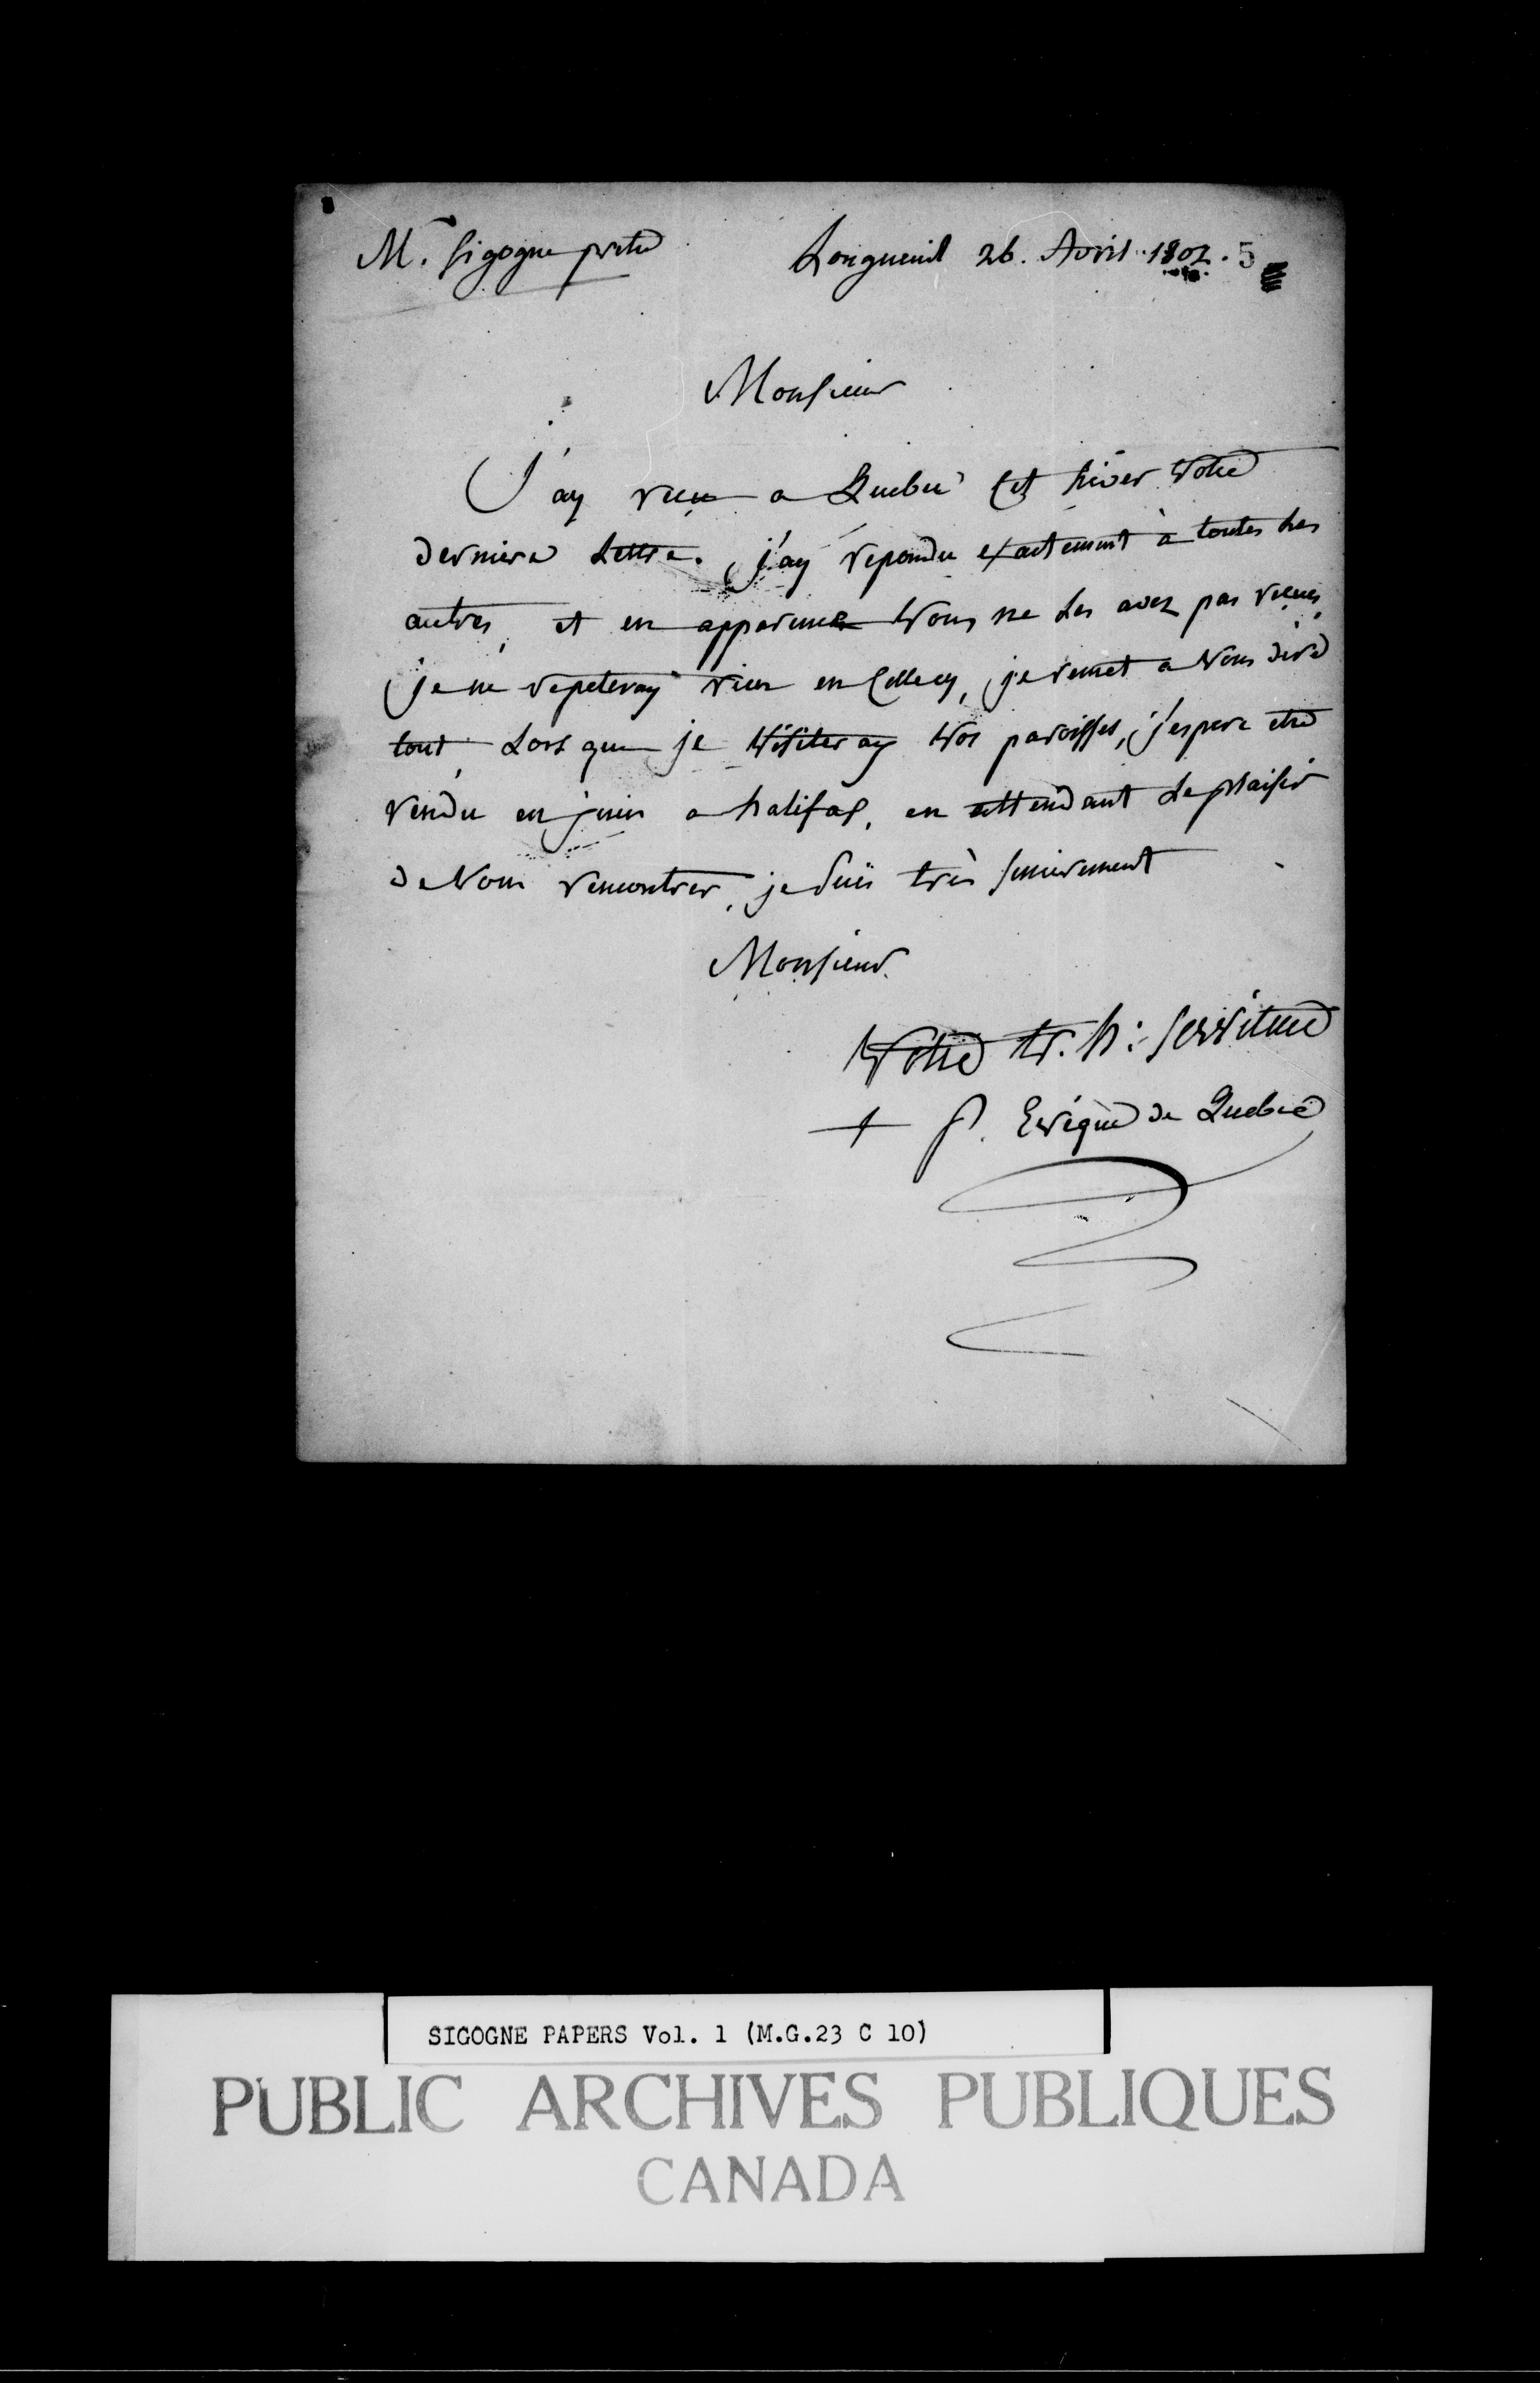 M. Sigogne pretre Longueuil 26. Avril 1802. 5
Monsieur
J'ay recu a Quebec cet hiver votre
derniere Lettre. j'ay repondu exactement à toutes les
autres, et en apparence vous ne les avez pas recues,
je ne repeteray rien en celle cy, je remet a vous dire
tout, Lors que je visiteray vos paroisses, j'espere etre
rendu en juin a halifax, en attendant le plaisir
de vous rencontrer, je suis très sincerement
Monsieur
Votre tr. h: serviteur
+ P. Evéque de Quebec
SIGOGNE PAPERS Vol. 1 (M.G.23 C 10)
PUBLIC ARCHIVES PUBLIQUES
CANADA